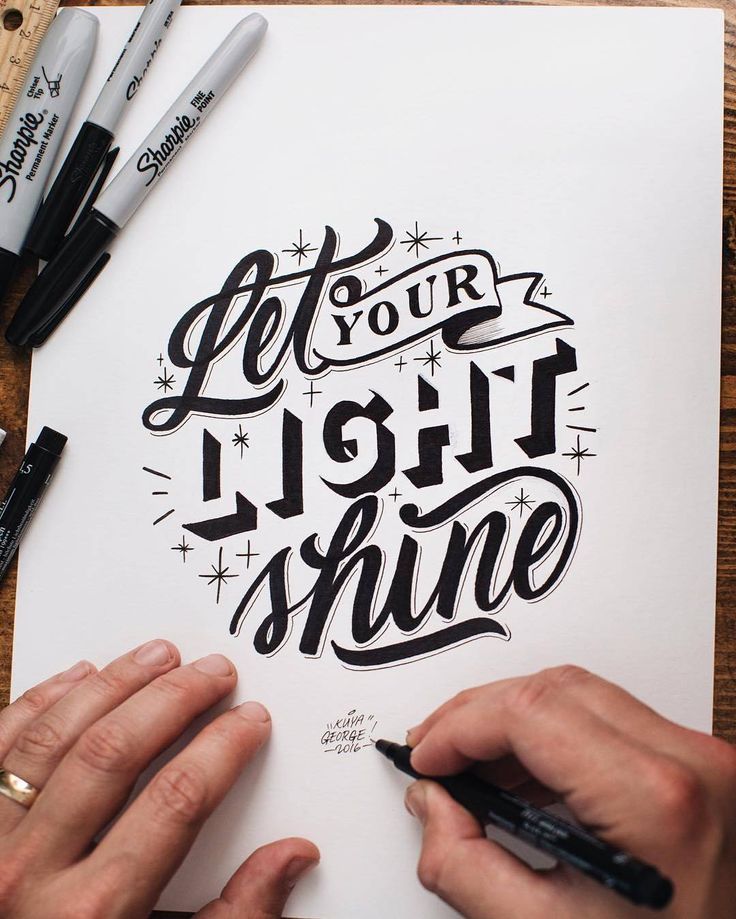 Let
YOUR
LIGHT
shine
"KUYA"
GEORGE!
-2016-
Sharpie
Permanent Marker
Chisel
Tip
Sharpie
Sharpie
FINE
POINT